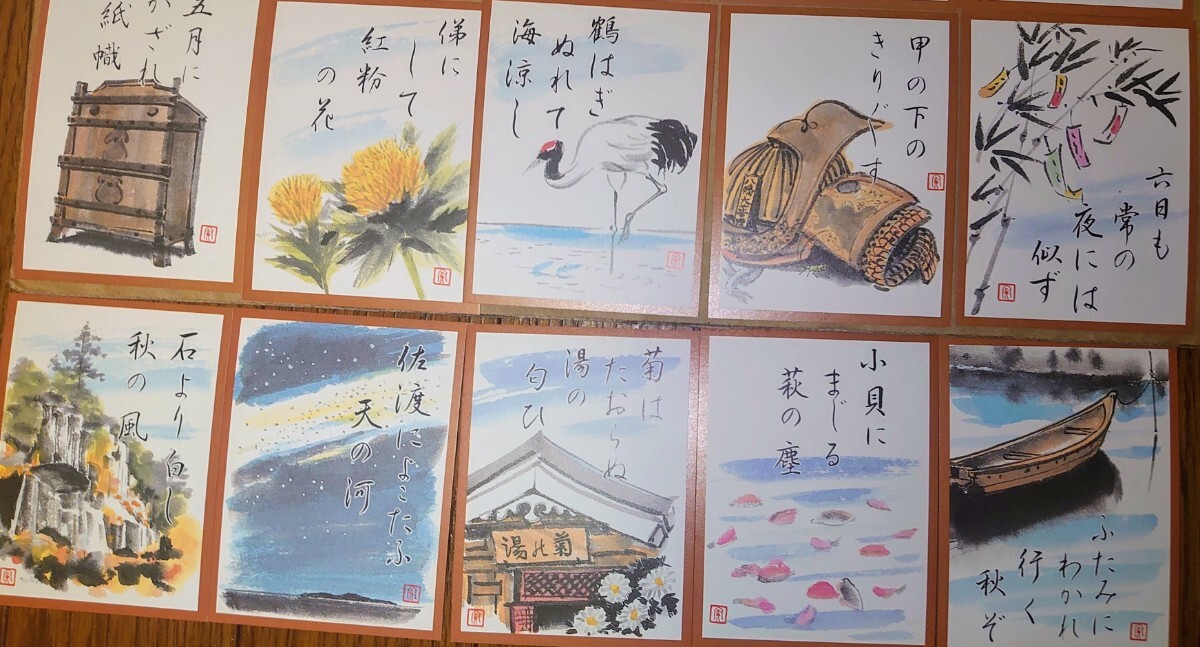 五月に
かざれ
紙幟
俤に
して
紅粉
の花
鶴はぎ
ぬれて
海涼し
甲の下の
きり〲す
六日も
常の
夜には
似ず
石より白し
秋の風
佐渡によこたふ
天の河
菊は
たおらぬ
湯の
匂ひ
菊の湯
小貝に
まじる
萩の塵
ふたみに
わかれ
行く
秋ぞ